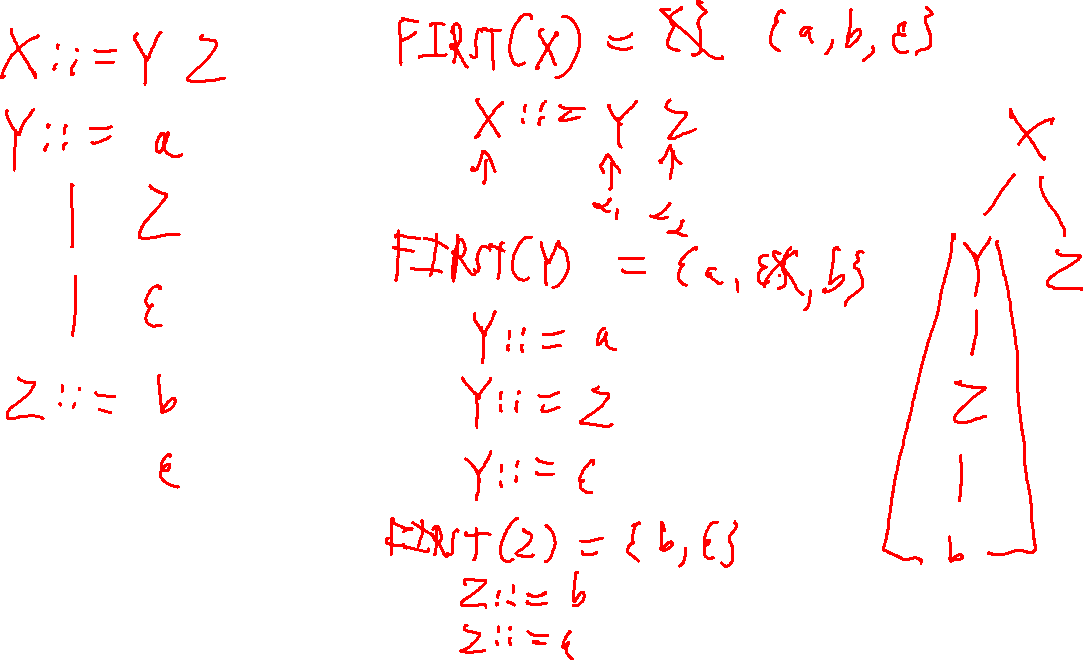 X ::= Y Z
Y ::= a
| Z
| ε
Z ::= b
ε
FIRST(X) = {} {a, b, ε}
X ::= Y Z
↑ ↑ ↑
α₁ α₂
FIRST(Y) = {a, ε, b}
Y ::= a
Y ::= Z
Y ::= ε
FIRST(Z) = {b, ε}
Z ::= b
Z ::= ε
X
Y Z
Z
b